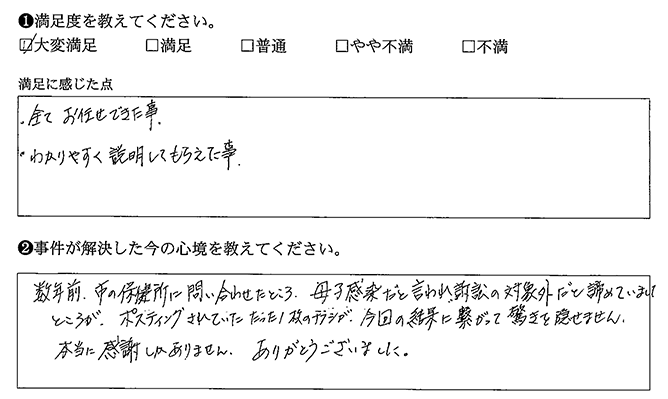 ❶満足度を教えてください。
☑大変満足 □満足 □普通 □やや不満 □不満
満足に感じた点
・全て お任せできた事.
・わかりやすく説明してもらえた事.
❷事件が解決した今の心境を教えてください。
数年前、市の保健所に問い合わせたところ、母子感染だと言われ、訴訟の対象外だと諦めていまし
ところが、ポスティングされていた たった1枚のチラシが、今回の結果に繋がって驚きを隠せません.
本当に感謝しかありません. ありがとうございました.